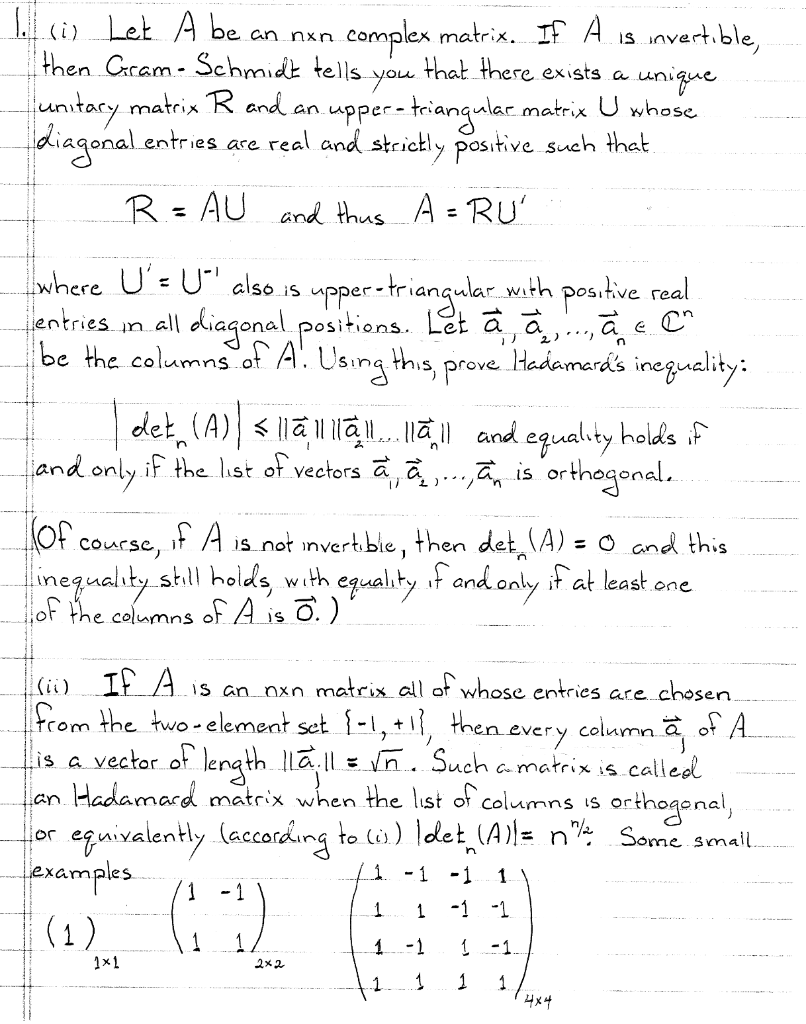 1. (i) Let A be an nxn complex matrix. If A is invertible,
then Gram-Schmidt tells you that there exists a unique
unitary matrix R and an upper-triangular matrix U whose
diagonal entries are real and strictly positive such that
R = AU and thus A = RU'
where U' = U⁻¹ also is upper-triangular with positive real
entries in all diagonal positions. Let a⃗₁, a⃗₂, ..., a⃗ₙ ∈ ℂⁿ
be the columns of A. Using this, prove Hadamard's inequality:
|detₙ(A)| ≤ ||a⃗₁|| ||a⃗₂|| ... ||a⃗ₙ|| and equality holds if
and only if the list of vectors a⃗₁, a⃗₂, ..., a⃗ₙ is orthogonal.
(Of course, if A is not invertible, then detₙ(A) = 0 and this
inequality still holds, with equality if and only if at least one
of the columns of A is 0⃗.)
(ii) If A is an nxn matrix all of whose entries are chosen
from the two-element set {-1, +1}, then every column a⃗ⱼ of A
is a vector of length ||a⃗ⱼ|| = √n. Such a matrix is called
an Hadamard matrix when the list of columns is orthogonal,
or equivalently (according to (i)) |detₙ(A)| = n^(n/2). Some small
examples
(1) 1x1
1 -1
1 1
2x2
1 -1 -1 1
1 1 -1 -1
1 -1 1 -1
1 1 1 1
4x4